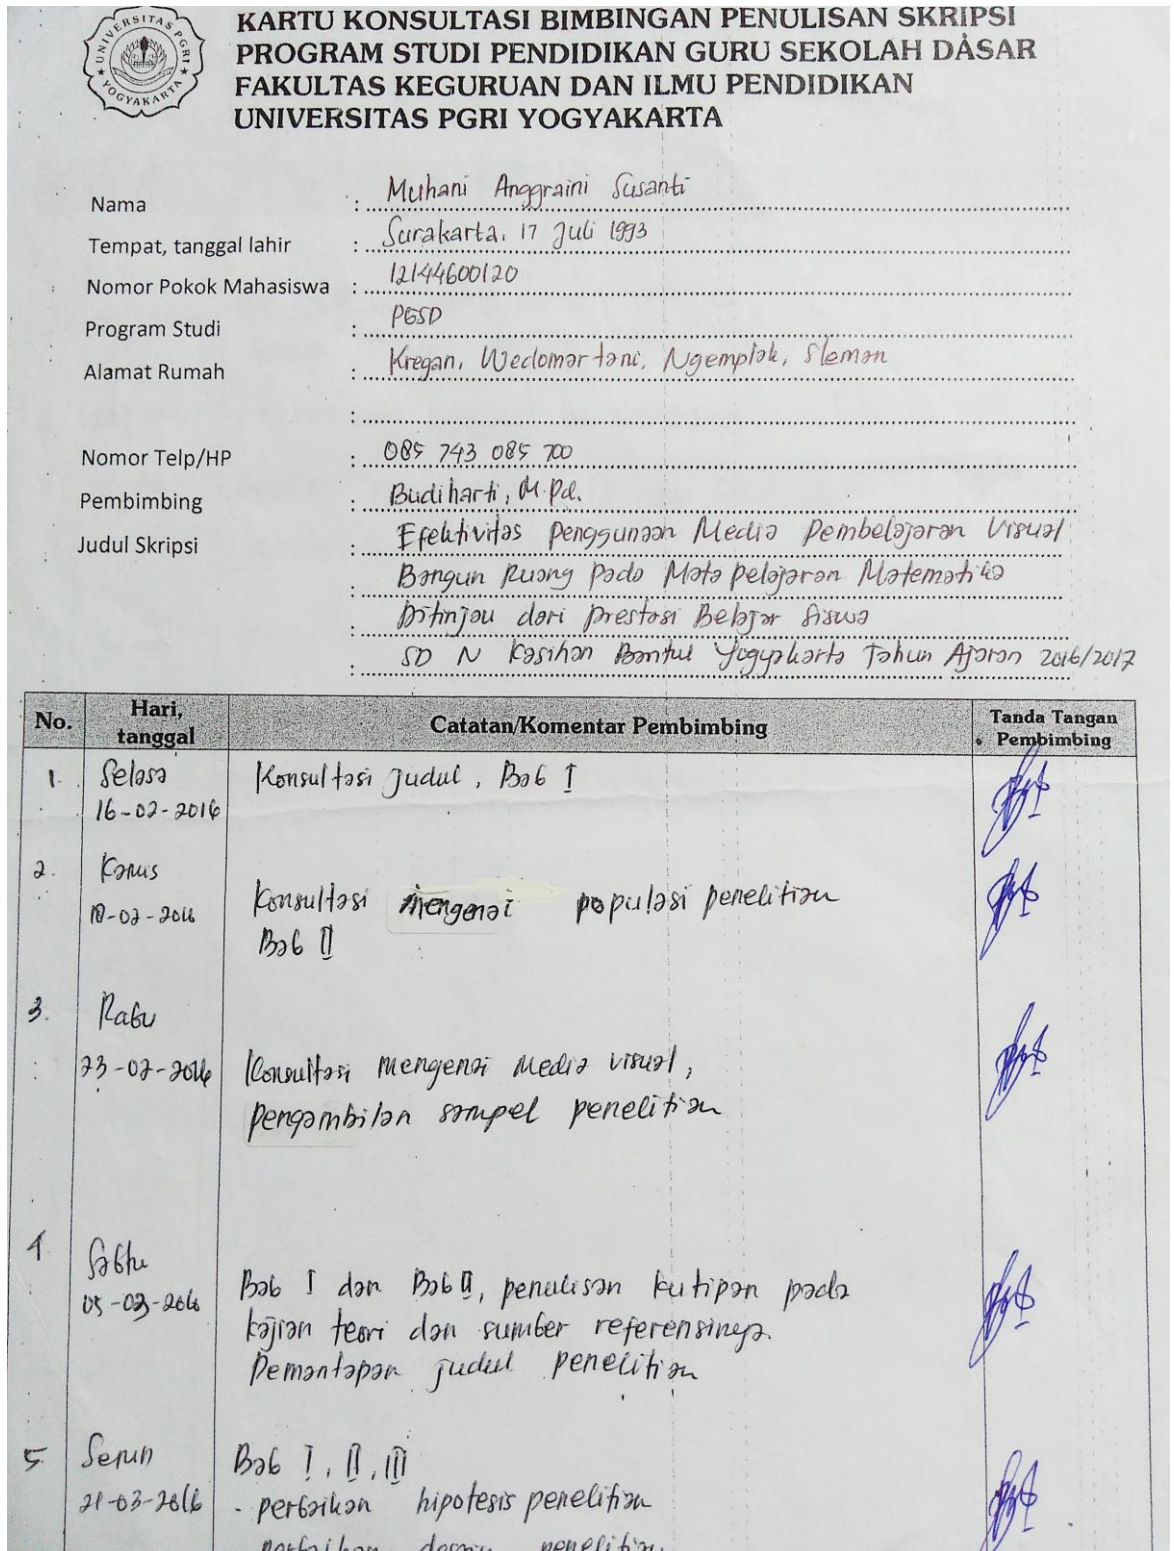 UNIVERSITAS PGRI YOGYAKARTA
KARTU KONSULTASI BIMBINGAN PENULISAN SKRIPSI
PROGRAM STUDI PENDIDIKAN GURU SEKOLAH DASAR
FAKULTAS KEGURUAN DAN ILMU PENDIDIKAN
UNIVERSITAS PGRI YOGYAKARTA
Nama : Muhani Anggraini Susanti
Tempat, tanggal lahir : Surakarta, 17 Juli 1993
Nomor Pokok Mahasiswa : 12144600120
Program Studi : PGSD
Alamat Rumah : Kregan, Wedomartani, Ngemplak, Sleman
:
Nomor Telp/HP : 085 743 085 700
Pembimbing : Budiharti, M.Pd.
Judul Skripsi : Efektivitas Penggunaan Media Pembelajaran Visual
: Bangun Ruang pada Mata pelajaran Matematika
: Ditinjau dari prestasi Belajar Siswa
: SD N Kasihan Bantul Yogyakarta Tahun Ajaran 2016/2017
No. Hari, tanggal Catatan/Komentar Pembimbing Tanda Tangan Pembimbing
1. Selasa Konsultasi judul, Bab I
16-02-2016
2. Kamis
-02-2016 Konsultasi mengenai populasi penelitian
Bab II
3. Rabu
23-02-2016 Konsultasi mengenai media visual,
pengambilan sampel penelitian
4 Sabtu
05-03-2016 Bab I dan Bab II, penulisan kutipan pada
kajian teori dan sumber referensinya.
Pemantapan judul penelitian
5 Senin Bab I, II, III
21-03-2016 - perbaikan hipotesis penelitian
perbaikan penelitian